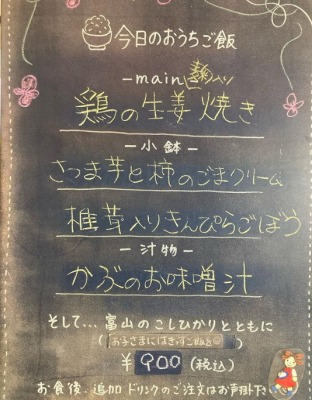 今日のおうちご飯
-main- 麹入り
鶏の生姜焼き
-小鉢-
さつま芋と柿のごまクリーム
椎茸入りきんぴらごぼう
-汁物-
かぶのお味噌汁
そして... 富山のこしひかりとともに
(お子さまには
¥900(税込)
お食後、追加ドリンクのご注文はお声掛け下さい